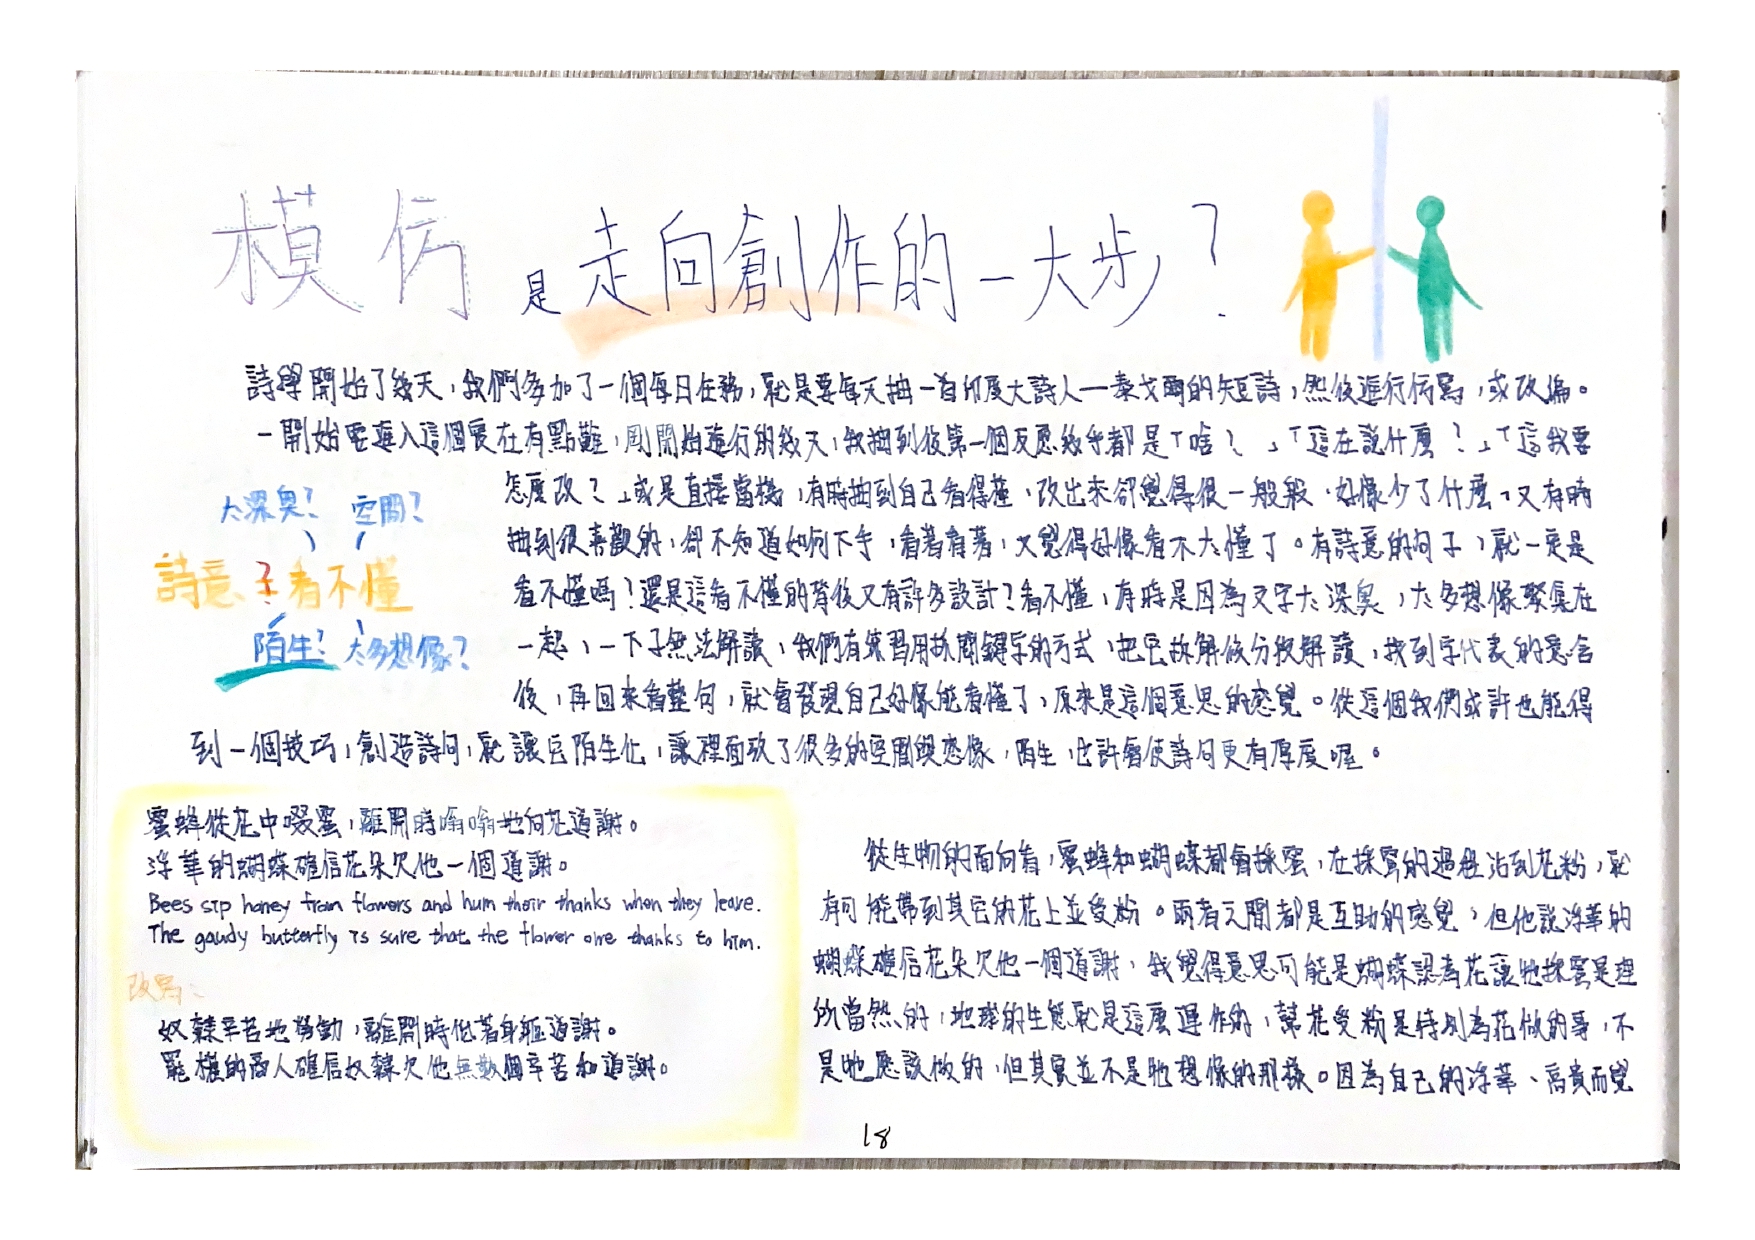 模仿是走向創作的一大步?
詩學開始了幾天,我們多加了一個每日任務,就是要每天抽一首印度大詩人—泰戈爾的短詩,然後進行仿寫,或改編。
一開始要進入這個實在有點難,剛開始進行的幾天,我抽到後第一個反應幾乎都是「啥?」「這在說什麼?」「這我要
怎麼改?」或是直接當機,有時抽到自己看得懂,改出來卻覺得很一般般,好像少了什麼。又有時
抽到很喜歡的,卻不知道如何下手,看著看著,又覺得好像看不太懂了。有詩意的句子,就一定是
看不懂嗎?還是這看不懂的背後又有許多設計?看不懂,有時是因為文字太深奧,太多想像聚集在
一起,一下子無法解讀,我們有練習用抓關鍵字的方式,把它拆解做分段解讀,找到字代表的意含
後,再回來看整句,就會發現自己好像能看懂了,原來是這個意思的感覺。從這個我們或許也能得
到一個技巧,創造詩句,就讓它陌生化,讓裡面玖了很多的空間與想像,陌生,也許會使詩句更有厚度喔。
太深奧? 空間?
詩意、?看不懂
陌生? 太多想像?
蜜蜂從花中啜蜜,離開時嗡嗡地向花道謝。
浮華的蝴蝶確信花朵欠他一個道謝。
Bees sip honey from flowers and hum their thanks when they leave.
The gaudy butterfly is sure that the flower owe thanks to him.
改寫、
奴隸辛苦地勞動,離開時低著身軀道謝。
罷權的商人確信奴隸欠他無數個辛苦和道謝。
從生物的面向看,蜜蜂和蝴蝶都會採蜜,在採蜜的過程沾到花粉,就
有可能帶到其它的花上並受粉。兩者之間都是互助的感覺,但他說浮華的
蝴蝶確信花朵欠他一個道謝,我覺得意思可能是蝴蝶認為花讓牠採蜜是理
所當然的,地球的生態就是這麼運作的,幫花受粉是特別為花做的事,不
是牠應該做的,但其實並不是牠想像的那樣。因為自己的浮華、高貴而覺
18